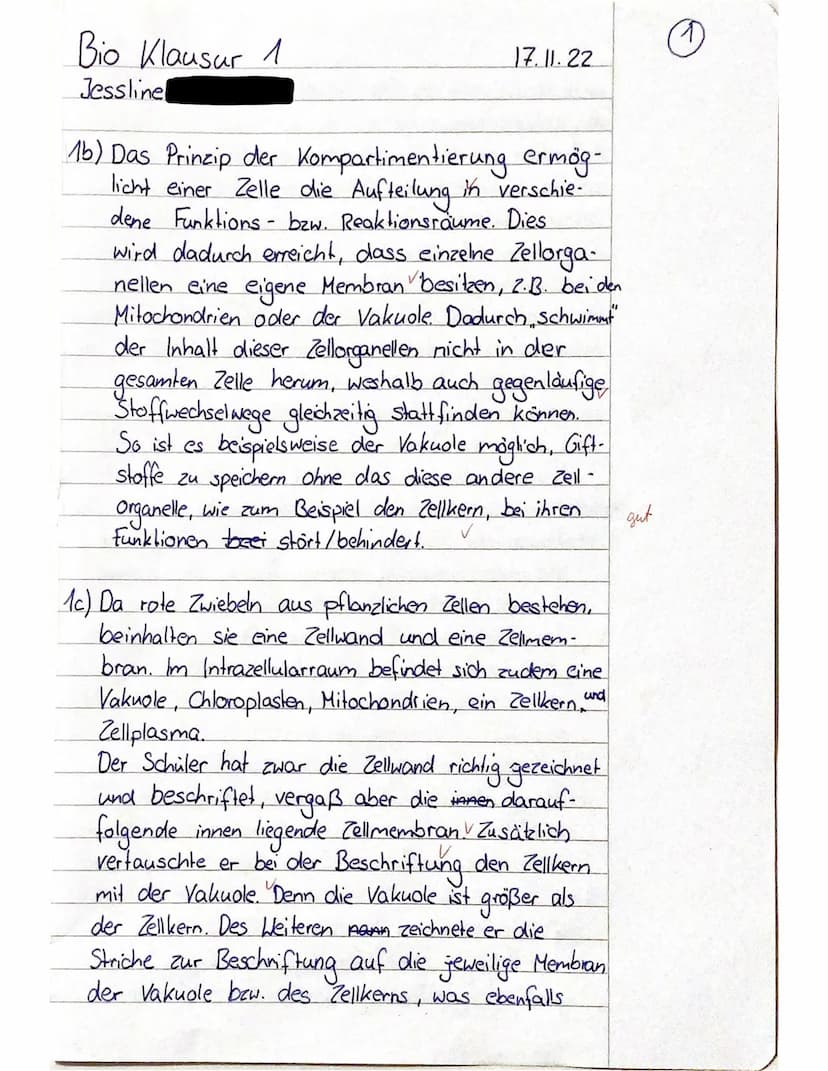 1
Bio Klausur 1 17.11.22
Jessline
1b) Das Prinzip der Kompartimentierung ermög-
licht einer Zelle die Aufteilung in verschie-
dene Funktions- bzw. Reaktionsräume. Dies
wird dadurch erreicht, dass einzelne Zellorga-
nellen eine eigene Membran besitzen, z.B. bei den
Mitochondrien oder der Vakuole. Dadurch „schwimmt"
der Inhalt dieser Zellorganellen nicht in der
gesamten Zelle herum, weshalb auch gegenläufige
Stoffwechselwege gleichzeitig stattfinden können.
So ist es beispielsweise der Vakuole möglich, Gift-
stoffe zu speichern ohne das diese andere Zell-
organelle, wie zum Beispiel den Zellkern, bei ihren gut
Funktionen stört/behindert.
1c) Da rote Zwiebeln aus pflanzlichen Zellen bestehen,
beinhalten sie eine Zellwand und eine Zellmem-
bran. Im Intrazellularraum befindet sich zudem eine
Vakuole, Chloroplasten, Mitochondrien, ein Zellkern, und
Zellplasma.
Der Schüler hat zwar die Zellwand richtig gezeichnet
und beschriftet, vergaß aber die innen darauf-
folgende innen liegende Zellmembran. Zusätzlich
vertauschte er bei der Beschriftung den Zellkern
mit der Vakuole. Denn die Vakuole ist größer als
der Zellkern. Des Weiteren zeichnete er die
Striche zur Beschriftung auf die jeweilige Membran
der Vakuole bzw. des Zellkerns, was ebenfalls